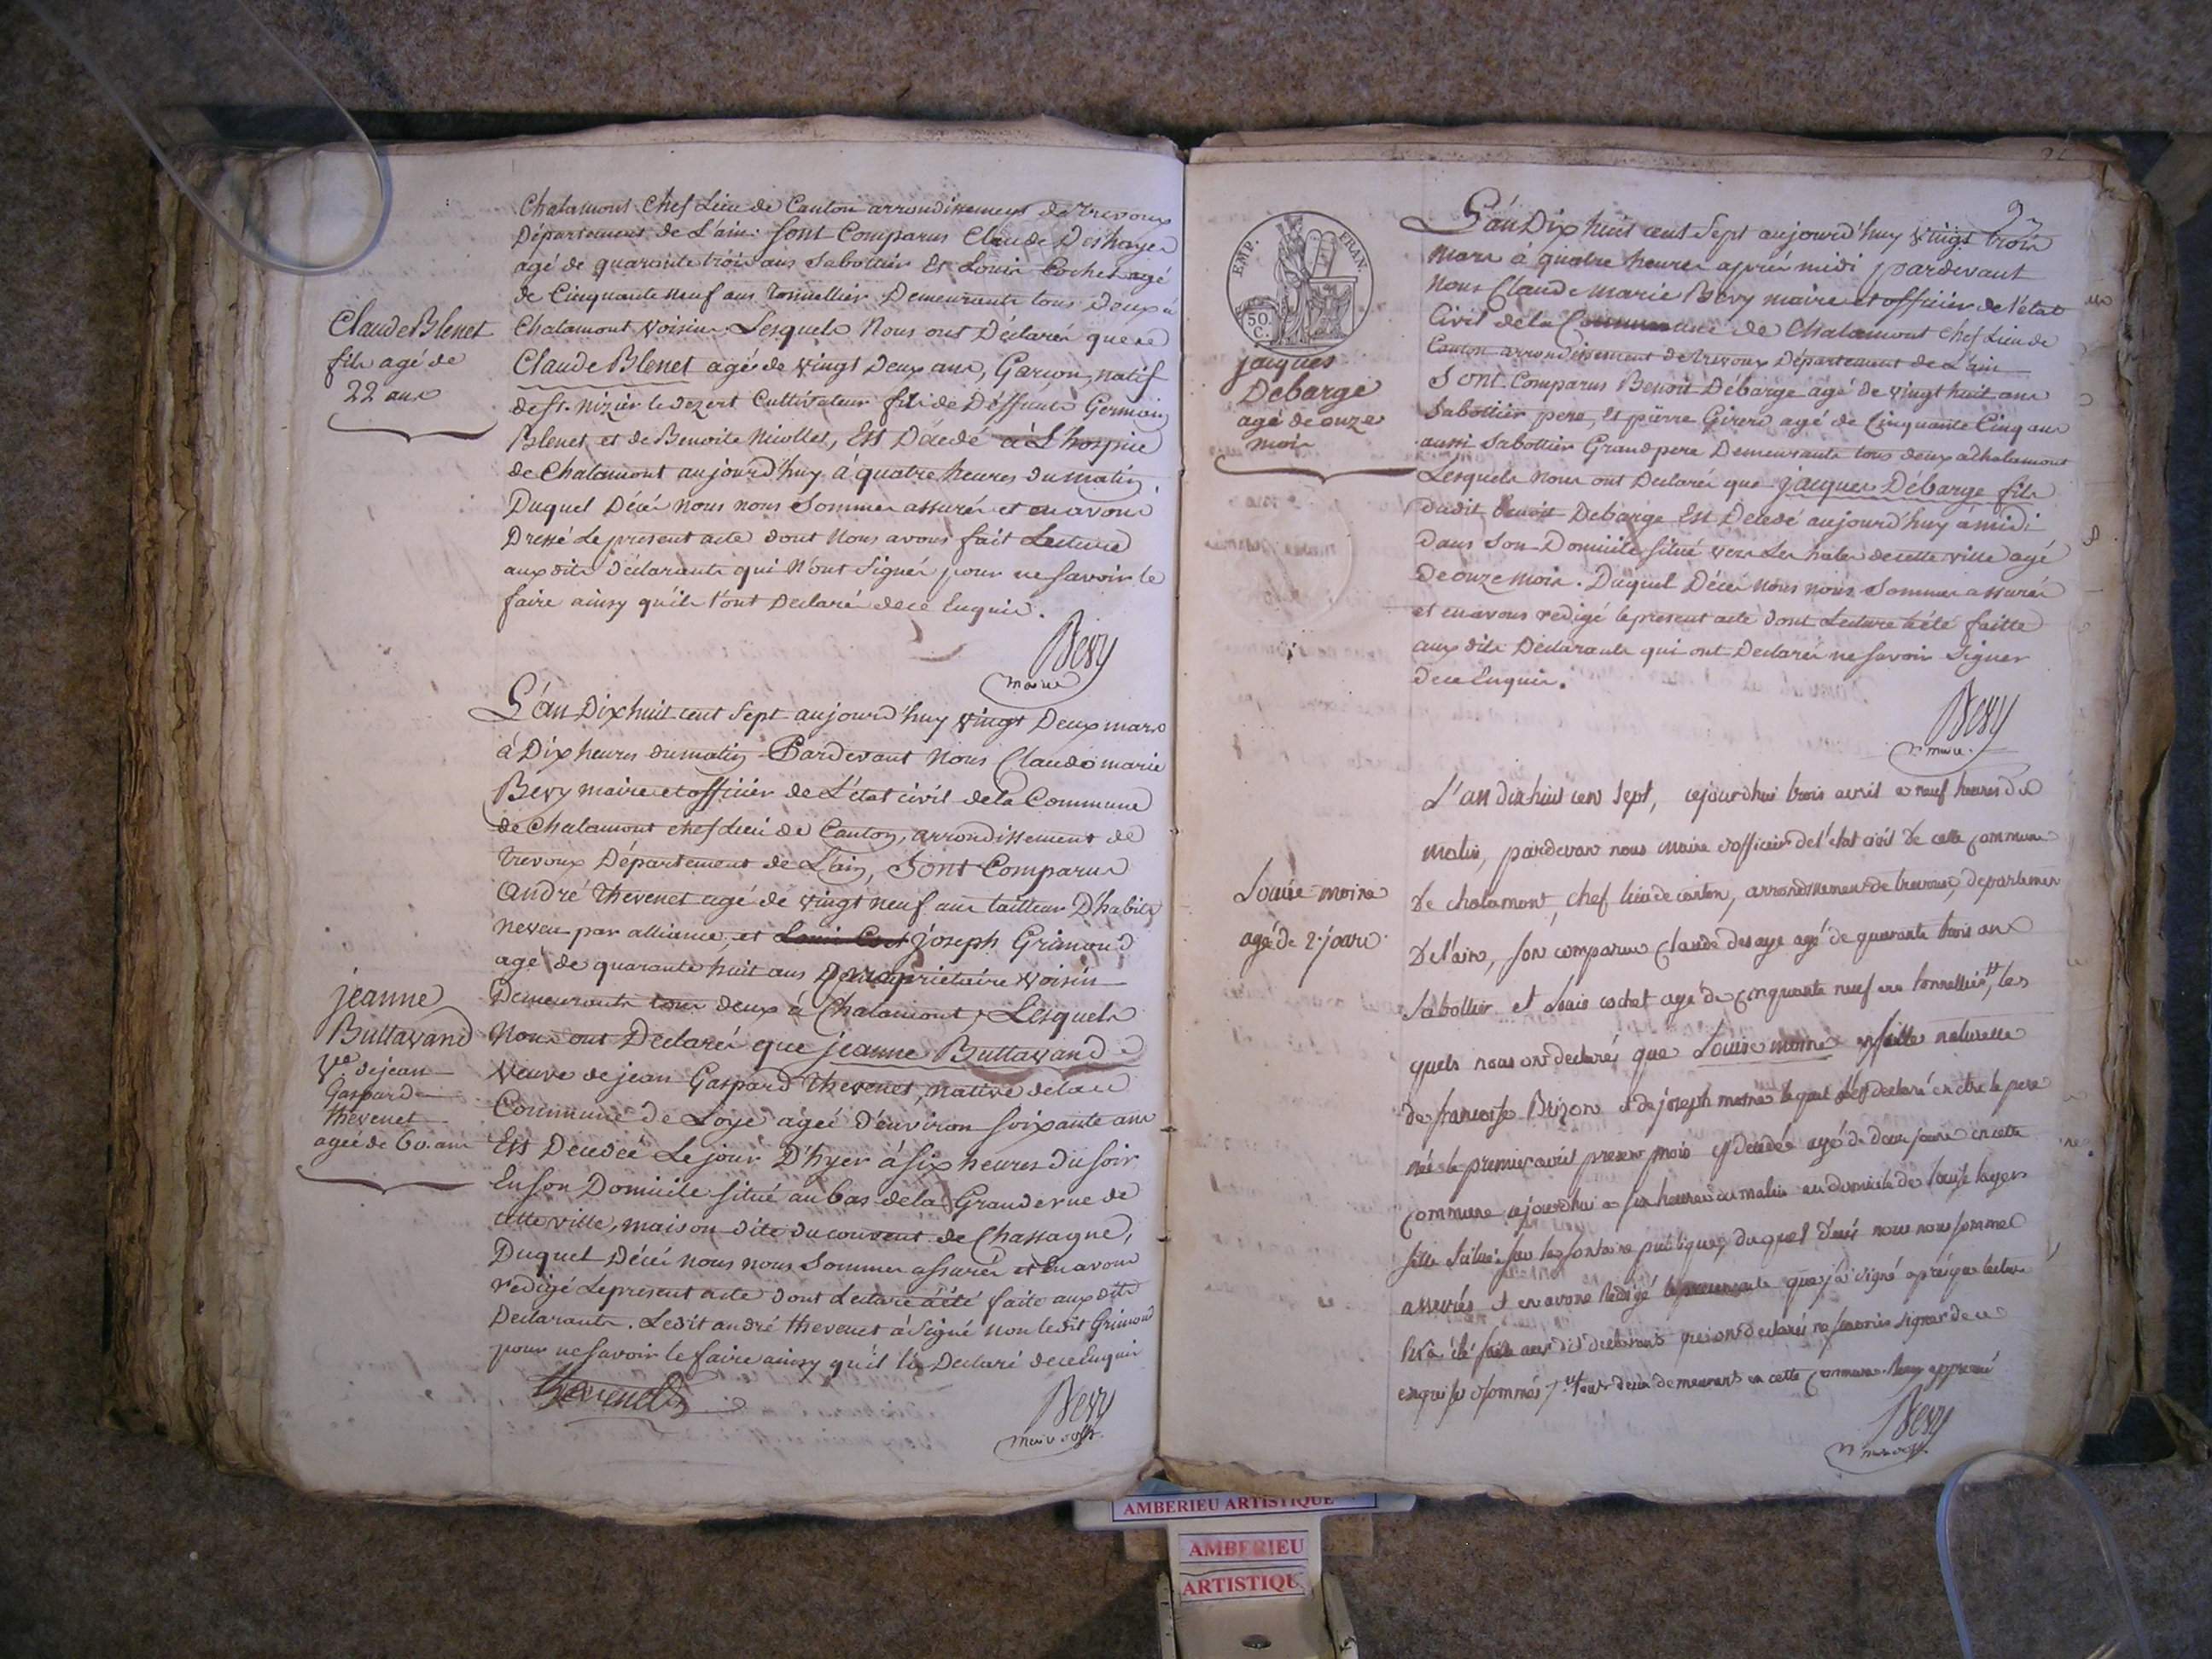 Chalamont Chef Lieu de Canton arrondissement de trevoux
Département de L'ain. sont Comparus Claude Deshayes
agé de quarante trois ans Sabottier Et Louis Cochet agé
de Cinquante neuf ans Tonnellier Demeurants tous Deux à
Chalamont Voisins Lesquels Nous ont Déclarés que ce
Claude Blenet agé de vingt Deux ans, Garçon, natif
de St. nizier le dezert Cultivateur fils de Déffunts Germain
Blenet, et de Benoite Nicollet, Est Décedé à L'hospice
de Chalamont aujourd'huy à quatre heures du matin.
Duquel Décés nous nous Sommes assurés et en avons
Dressé Le present acte dont Nous avons fait Lecture
aux dits déclarants qui N'ont Signés pour ne savoir le
faire ainsy qu'ils l'ont Declaré de ce Enquis.
Bevy
maire
Claude Blenet
fils agé de
22 ans
L'an Dix huit cent sept aujourd'huy vingt Deux mars
à Dix heures du matin Pardevant Nous Claude marie
Bevy maire et officier de L'état civil de la Commune
de Chalamont chef Lieu de Canton, arrondissement de
trevoux Département de L'ain, Sont Comparus
André thevenet agé de vingt neuf ans tailleur D'habits
neveu par alliance, et joseph Grimoud
agé de quarante huit ans propriétaire Voisin
Demeurants tous deux à Chalamont, Lesquels
Nous ont Declarés que jeanne Buttavand
Veuve de jean Gaspard thevenet, native de la
Commune de Loye agée d'environ soixante ans
Est Decedée Le jour D'hyer à six heures du soir
En son Domicile situé au bas de la Grande rue de
cette ville, maison dite du couvent de Chassagne,
Duquel Décés nous nous Sommes assurés et En avons
redigé Le present acte dont Lecture à été faite aux dits
Declarants. Ledit andré thevenet à Signé non ledit Grimoud
pour ne savoir le faire ainsy qu'il l'a Declaré de ce Enquis
thevenet
Bevy
jeanne
Buttavand
Ve de jean
Gaspard
thevenet
agée de 60. ans
EMP. FRAN.
50
C.
jacques
Débarge
agé de onze
mois
L'an Dix huit cent Sept aujourd'huy vingt trois
mars à quatre heures aprés midi pardevant
Nous Claude marie Bevy maire et officier de l'état
Civil de la Commune de Chalamont Chef Lieu de
Canton arrondissement de trevoux Département de L'ain
Sont Comparus Benoit Debarge agé de vingt huit ans
Sabottier pere, et pierre Girerd agé de Cinquante Cinq ans
aussi Sabottier Grand pere Demeurants tous deux à Chalamont
Lesquels Nous ont Declarés que jacques Débarge fils
dudit benoit Debarge Est Decedé aujourd'huy à midi
dans Son Domicile situé vers Les hales de cette ville agé
De onze mois. Duquel Décés Nous nous Sommes assurés
et en avons redigé le present acte dont Lecture à été faitte
aux dits Déclarants qui ont Declarés ne savoir Signer
de ce Enquis.
Bevy
maire
Louise moine
agé de 2. jours
L'an dix huit cent sept, cejourdhui trois avril a neuf heures du
matin, pardevant nous maire et officier de l'état civil de cette commune
de chalamont, chef lieu de canton, arrondissement de trevoux, departement
de l'ain, son comparus claude desaye agé de quarante trois ans
Sabottier et Louis cochet agé de cinquante neuf ans tonnellier, les
quels nous ont declarés que Louise moine fille naturelle
de francoise Brizon et de joseph moine lequel s'est declaré en etre le pere
née le premier avril present mois est decedée agé de deux jours en cette
commune cejourdhui a six heures du matin au domicile de
fille située sur la fontaine publique, duquel decés nous nous sommes
assurés et en avons redigé le present acte que j'ai signé aprés que lecture
a été faite aux dits declarants qui ont declarés ne savoir signer de ce
enquis et sommés tous deux demeurants en cette commune. Renv. approuvé
Bevy
AMBERIEU ARTISTIQUE
AMBERIEU
ARTISTIQU